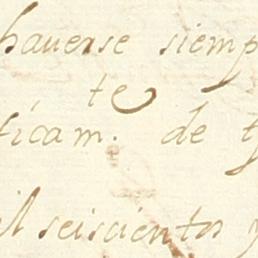 hauerse siemp
ficam.te de t
il seiscientos y